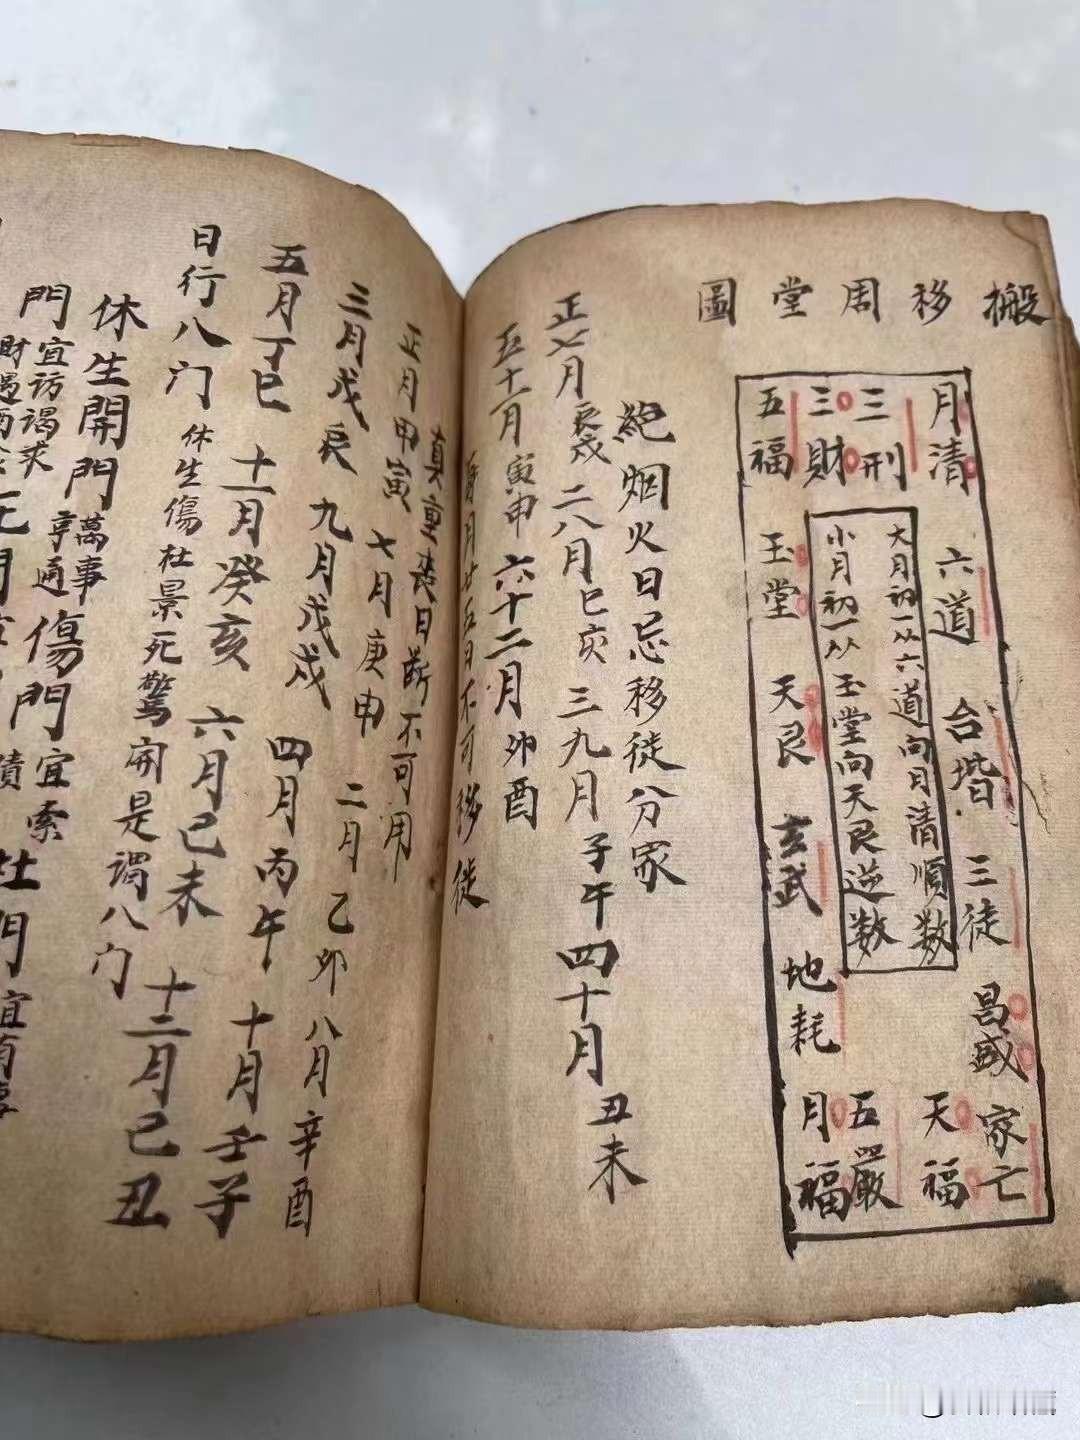 搬移周堂圖
月清
三刑
三財
五福
六道
玉堂
台堦
天良
三徒
玄武
昌盛
地耗
家亡
天福
五嚴
月福
大月初一从六道向月清順数
小月初一从玉堂向天良逆数
絶烟火日忌移徒分家
正七月辰戌 二八月巳亥 三九月子午 四十月丑未
五十一月寅申 六十二月卯酉
每月廿五日不可移徙
真重喪日断不可用
正月甲寅 七月庚申 二月乙卯 八月辛酉
三月戊辰 九月戊戌 四月丙午 十月壬子
五月丁巳 十一月癸亥 六月己未 十二月己丑
日行八门 休生傷杜景死驚開是谓八门
休生開門萬事亨通 傷門宜索
門宜访谒求財遇酒
債 杜門宜